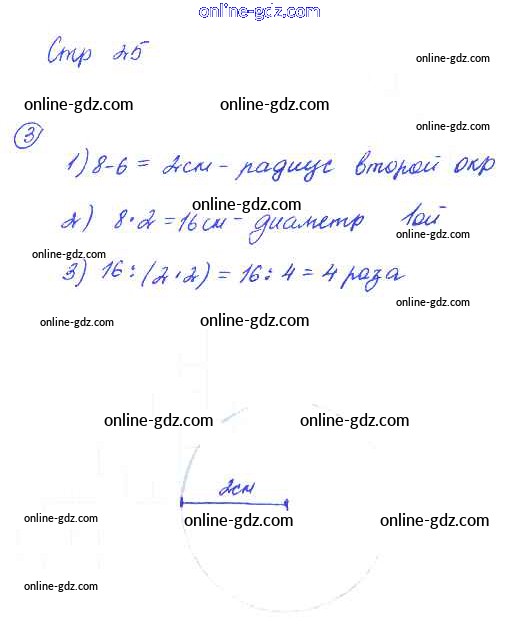 online-gdz.com
Стр 25
online-gdz.com
online-gdz.com online-gdz.com
online-gdz.com
3
1) 8-6 = 2см - радиус второй окр
online-gdz.com online-gdz.com
2) 8·2 = 16см - диаметр 1ой
online-gdz.com
online-gdz.com
3) 16:(2·2) = 16:4 = 4 раза
online-gdz.com
online-gdz.com online-gdz.com online-gdz.com
online-gdz.com online-gdz.com
2см
online-gdz.com online-gdz.com online-gdz.com
online-gdz.com